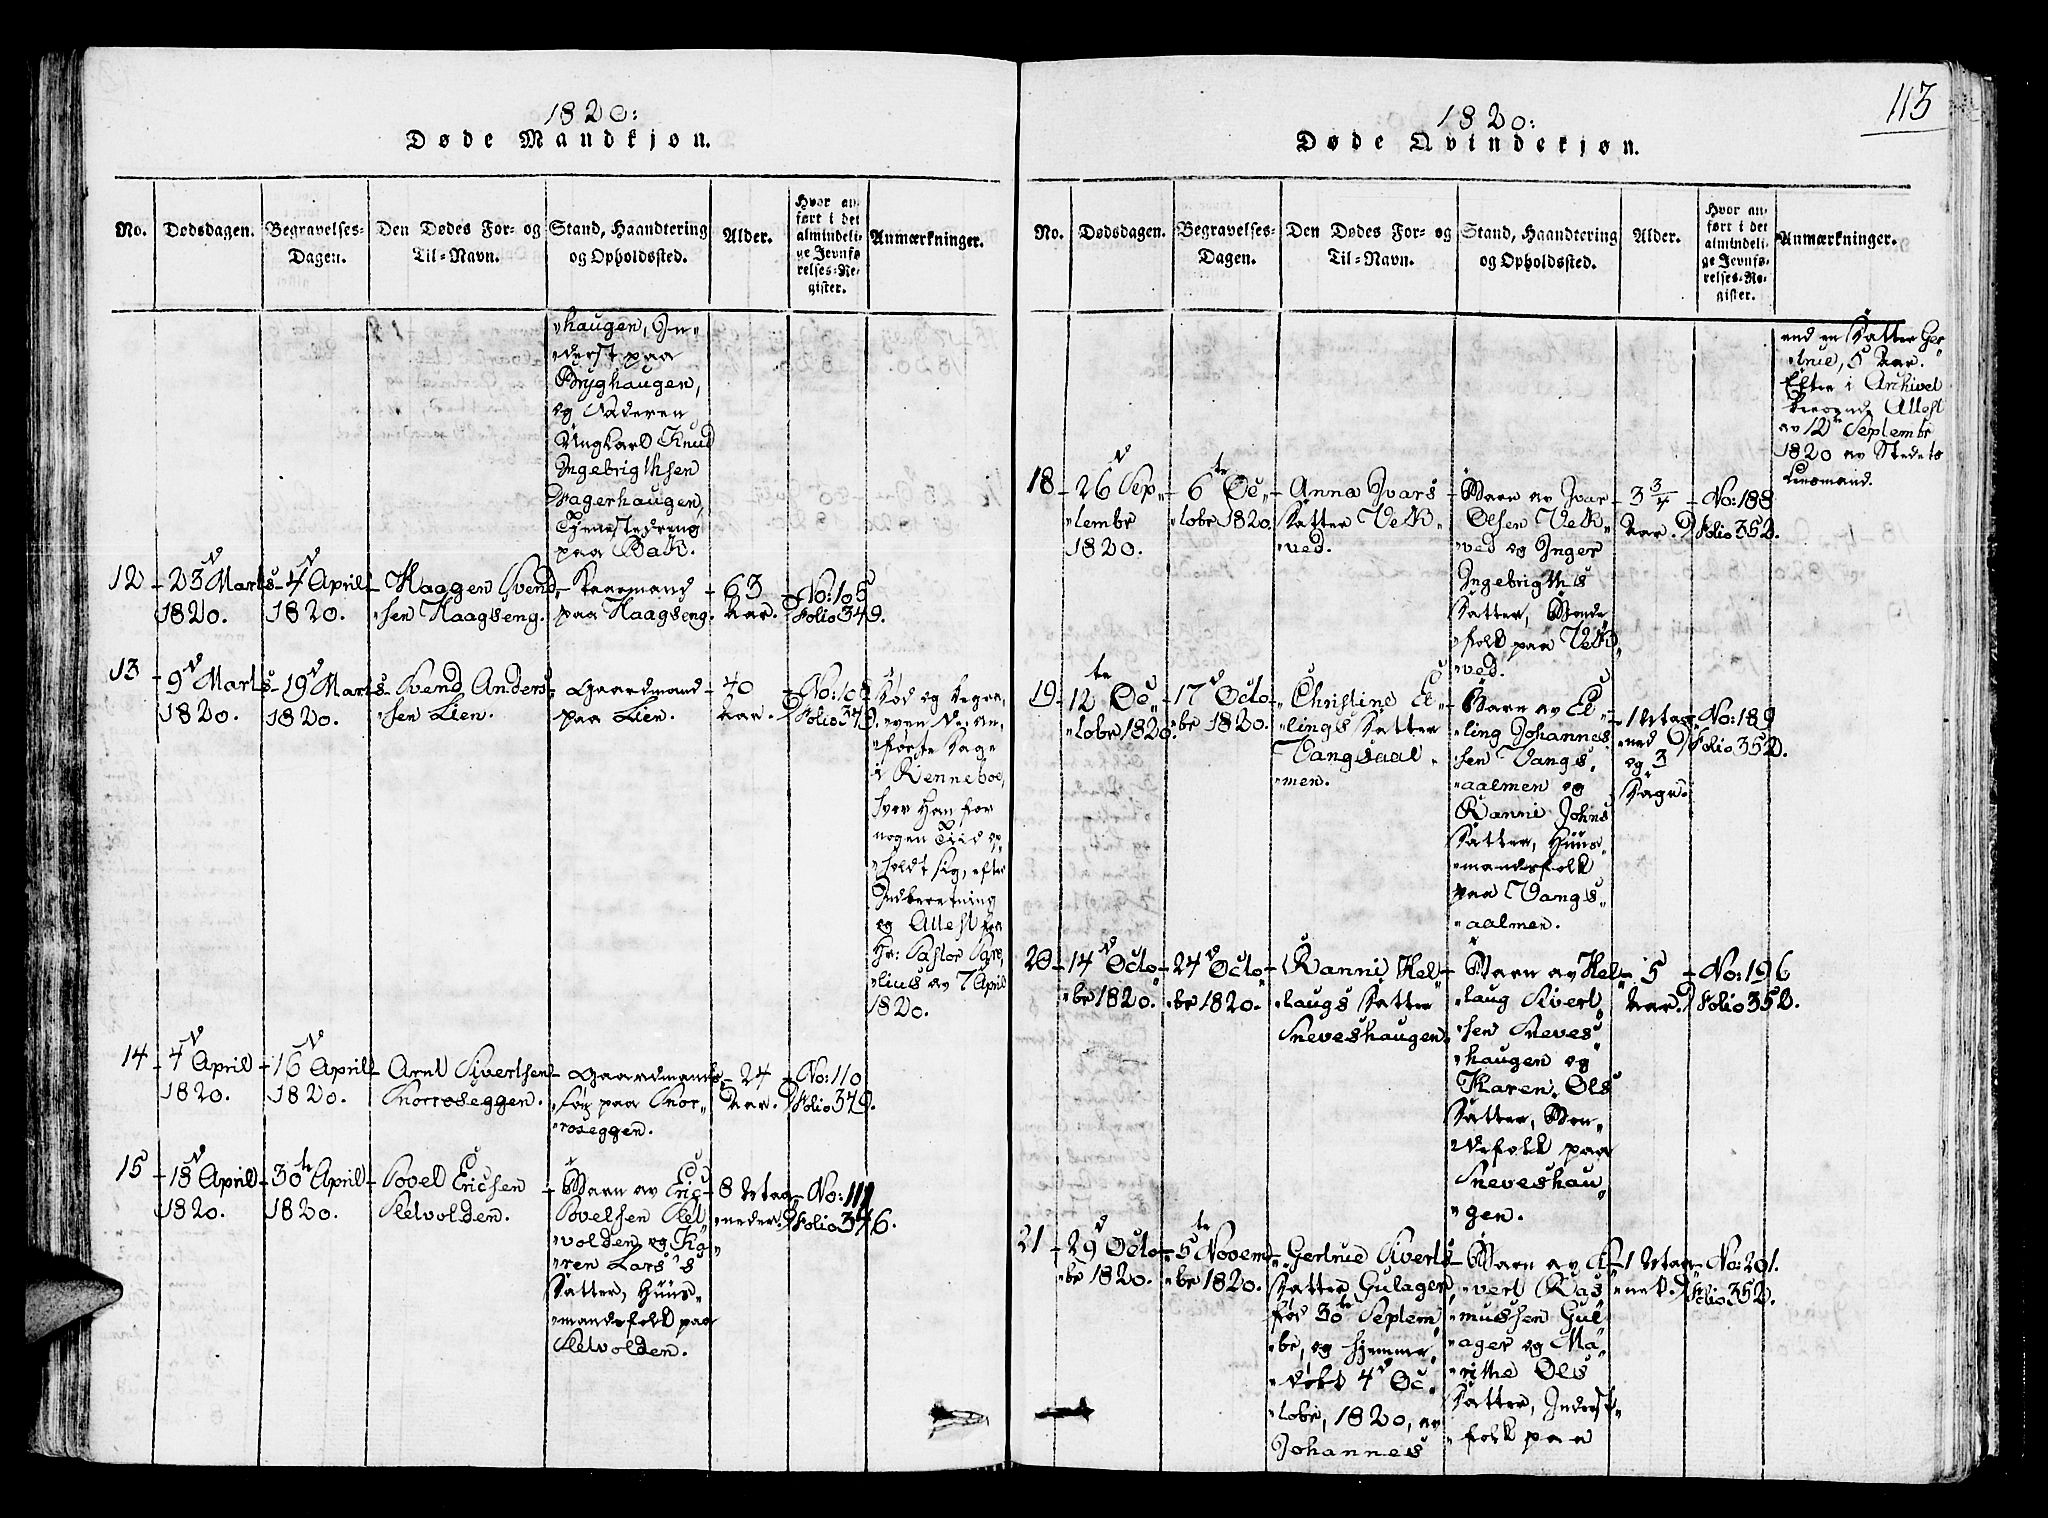 1820:
Døde Mandkjøn.
No.
Dødsdagen.
Begravelses-
Dagen.
Den Dødes For- og
Til-Navn.
Stand, Haandtering
og Opholdssted.
Alder.
Hvor an-
ført i det
almindeli-
ge Jevnfø-
relses-Re-
gister.
Anmærkninger.
haugen, In-
derst paa
Bryghaugen,
og Faderen
Ungkarl Knud
Ingebrigthsen
Fagerhaugen,
Tjenestedreng
paa Bak.
12
23d Marts
1820.
4d April
1820.
Haagen Svend
sen Haagseng.
Kaarmand
paa Haagseng.
63
Aar.
No: 106
Folio 349.
13
9d Marts
1820.
19d Marts
1820.
Svend Anders
sen Lien.
Gaardmand
paa Lien.
40
Aar.
No: 10
Folio 349.
Død og begra-
ven
første Dage
i Renneboe,
hvor Han for
nogen Tiid op-
holdt sig, efter
Indberetning
og Attest fra
Hr: Pastor
av 7 April
1820.
14
4d April
1820.
16d April
1820.
Arnt Sivertsen
Snorroseggen.
Gaardmands
søn paa Snor-
roseggen.
24
Aar.
No: 110
Folio 349.
15
18d April
1820.
30te April
1820.
Povel Ericsen
Sletvolden.
Barn av Eric
Povelsen Slet
volden og Ka-
ren Lars's
Datter, Huus-
mandsfolk paa
Sletvolden.
8 Maa-
neder.
No: 111
Folio 346.
113
1820:
Døde Qvindekjøn.
No.
Dødsdagen.
Begravelses-
Dagen.
Den Dødes For- og
Til-Navn.
Stand, Haandtering
og Opholdssted.
Alder.
Hvor an-
ført i det
almindeli-
ge Jevnfø-
relses-Re-
gister.
Anmærkninger.
end en Datter Ger-
true, 5 Aar.
Efter i Archivet
beroende Attest
av 12te Septembr
1820 av Stedets
Lensmand.
18
26d Sep-
tembr
1820.
6te Oc-
tobr 1820.
Anne Ivars
Datter Vek-
ved.
Barn av Ivar
Olsen Vek-
ved og Inger
Ingebrigths
Datter, Bonde
folk paa Vek-
ved.
3 3/4
Aar.
No: 188
Folio 352.
19
12te Oc-
tobr 1820.
17d Octo-
br 1820.
Christine El-
lings Datter
Vangsaal-
men.
Barn av El-
ling Johannes
sen Vangs-
aalmen og
Ranni Johns
Datter, Huus-
mandsfolk
paa Vangs-
aalmen.
1 Maa-
ned
og 3
Dage.
No: 189
Folio 352.
20
14d Octo-
br 1820.
24d Octo-
br 1820.
Ranni Hel-
laugs Datter
Sneveshaugen.
Barn av Hel-
laug Sivert-
sen Sneves-
haugen og
Karen Ols
Datter, Bon-
defolk paa
Sneveshau-
gen.
5
Aar.
No: 196
Folio 352.
21
29d Octo-
br 1820.
5te Novem-
br 1820.
Gertrue Siverts
Datter Gulager,
fød 30te Septem-
br, og hjemme-
døbt 4d Oc-
tobr, 1820, av
Johannes
Barn av Si-
vert Ras-
mussen Gul-
ager og Ma-
rithe Ols
Datter, Inderst-
folk paa
1 Maa-
net.
No: 201.
Folio 352.